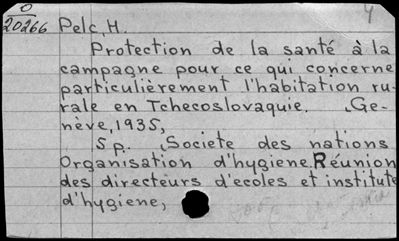 0
20266
Pelc, H.
4
Protection de la santé à la
campagne pour ce qui concerne
particulièrement l'habitation ru-
rale en Tchecoslovaquie. Ge-
nève, 1935,
5 p. Societe des nations
Organisation d'hygiene. Réunion
des directeurs d'ecoles et institute
d'hygiene,